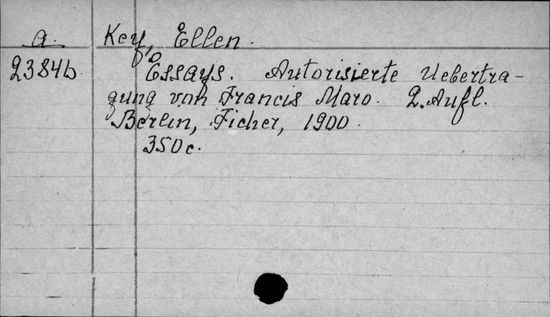 a. Key, Ellen.
23846. Essays. Autorisierte Uebertra-
gung von Francis Maro. 2. Aufl.
Berlin, Ficher, 1900.
350 c.